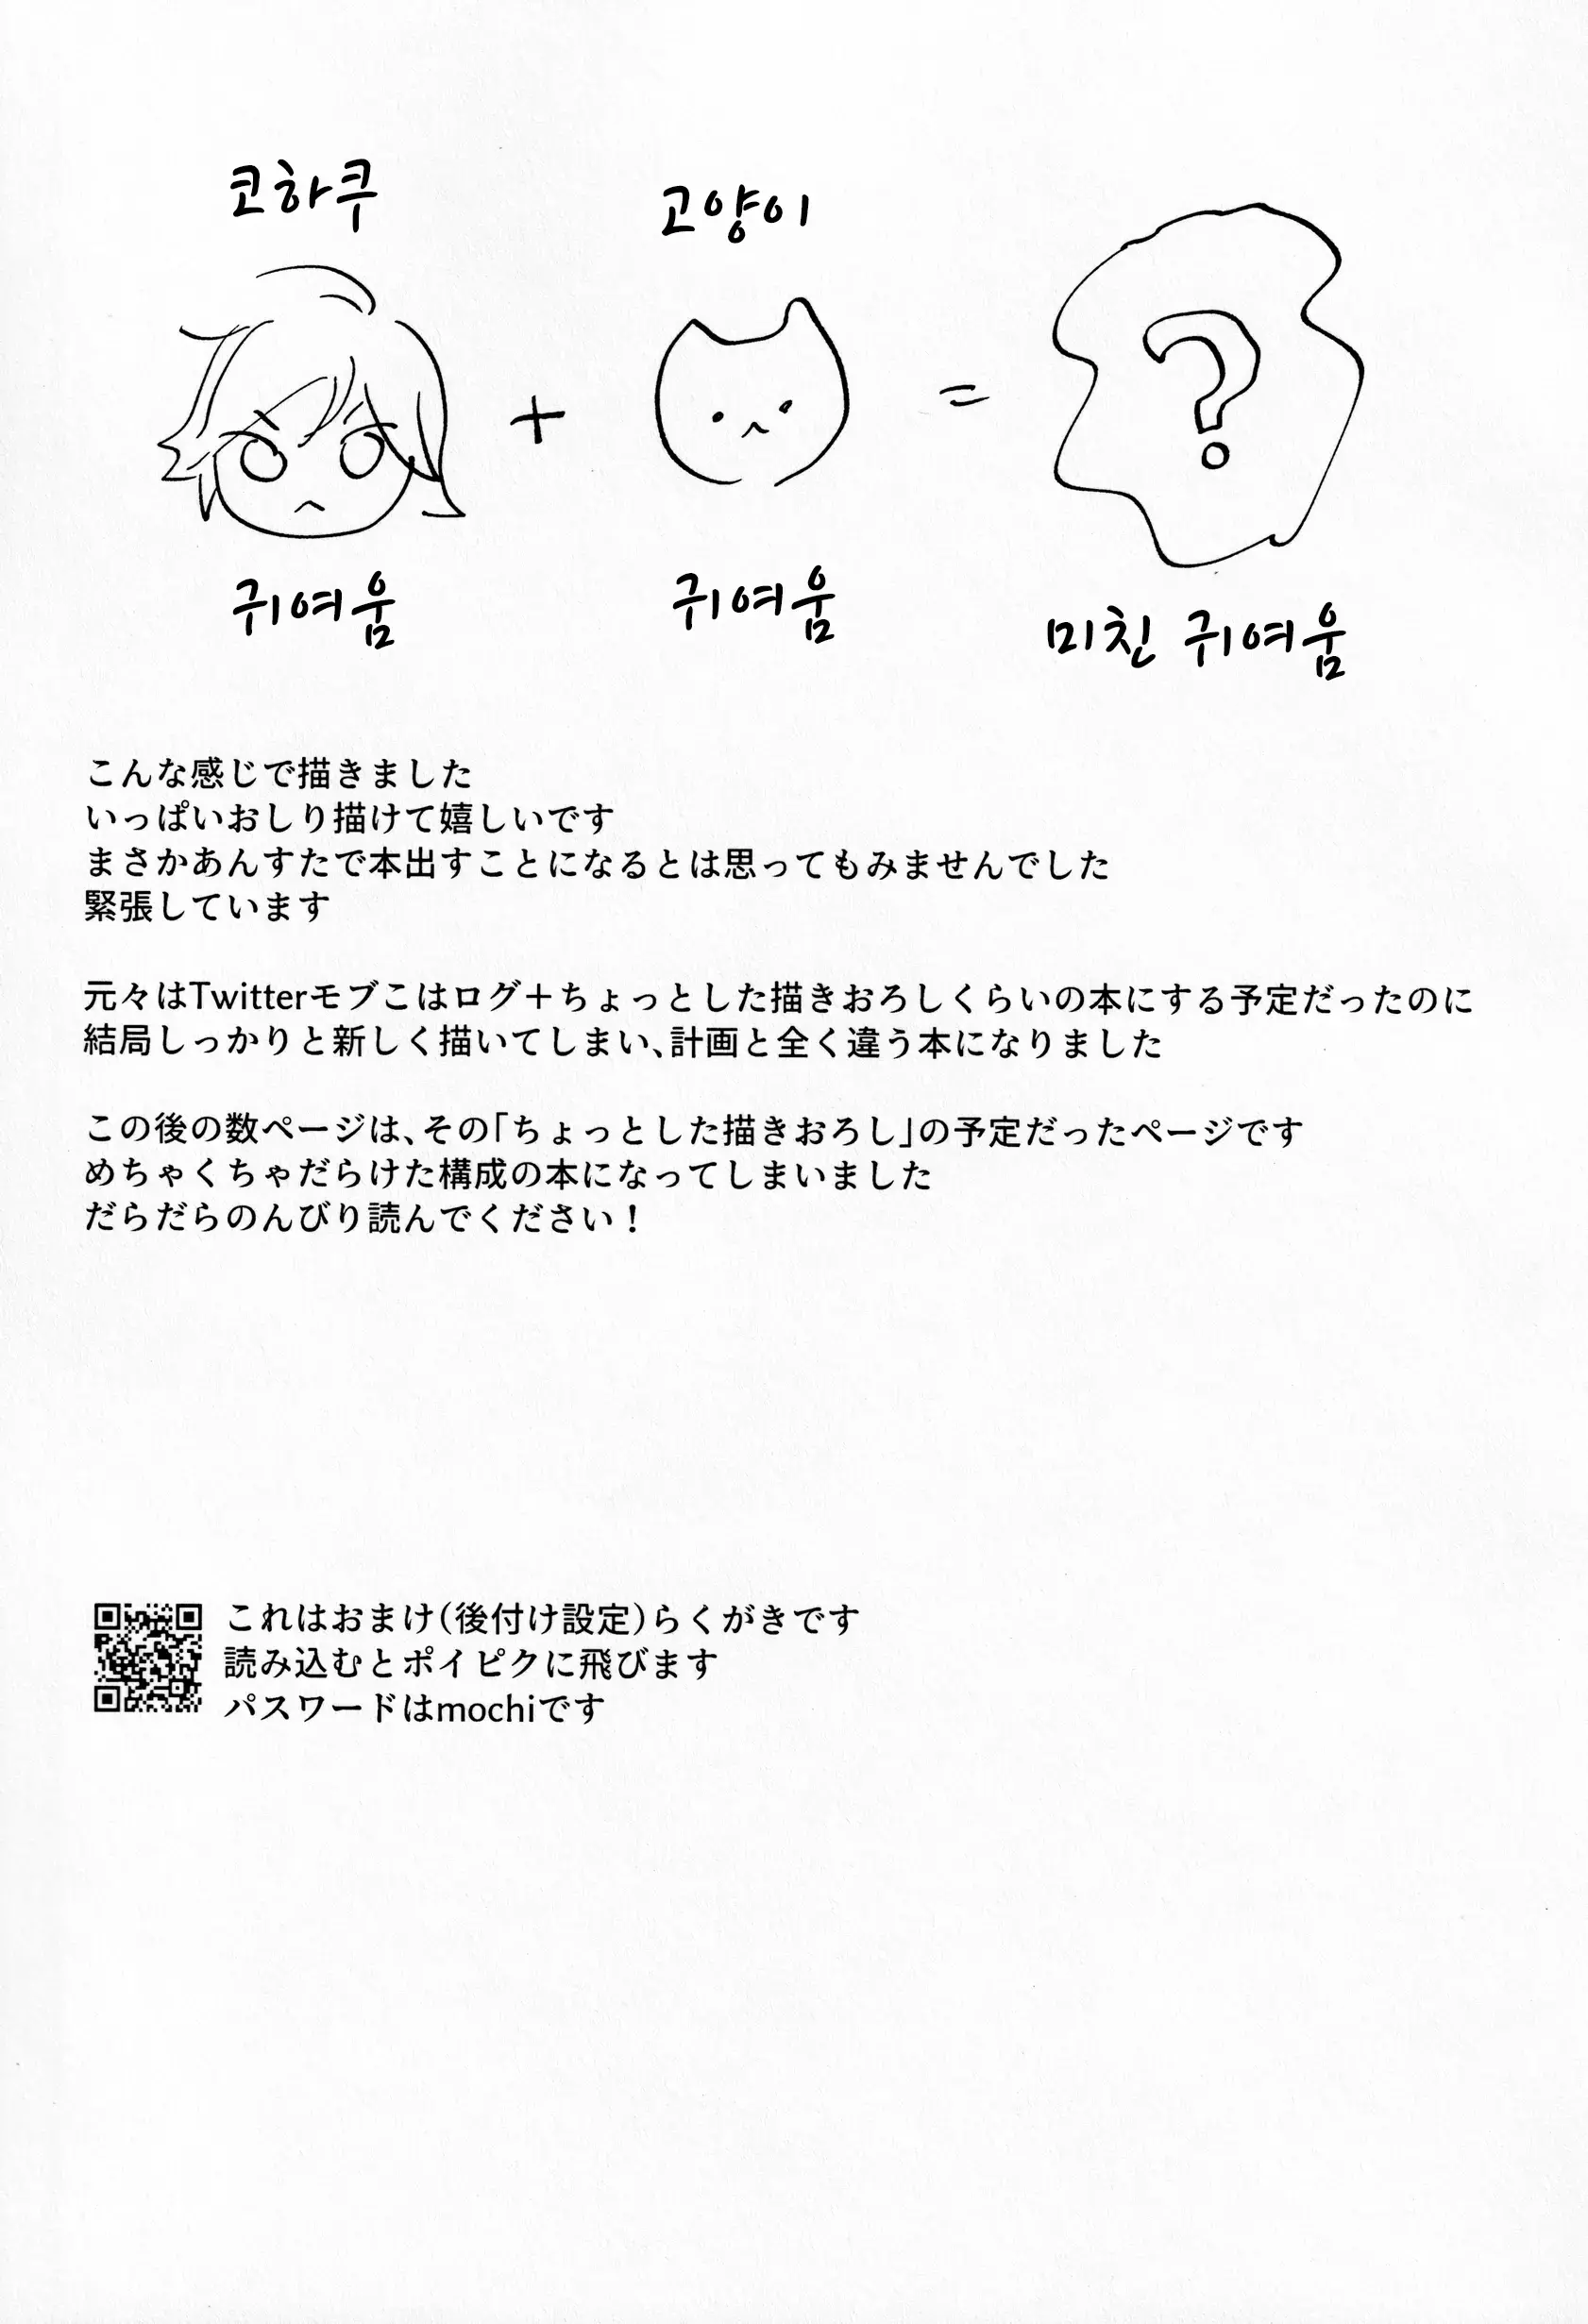 코하쿠
고양이
+
=
?
귀여움
귀여움
미친 귀여움
こんな感じで描きました
いっぱいおしり描けて嬉しいです
まさかあんすたで本出すことになるとは思ってもみませんでした
緊張しています
元々はTwitterモブこはログ＋ちょっとした描きおろしくらいの本にする予定だったのに
結局しっかりと新しく描いてしまい、計画と全く違う本になりました
この後の数ページは、その「ちょっとした描きおろし」の予定だったページです
めちゃくちゃだらけた構成の本になってしまいました
だらだらのんびり読んでください！
これはおまけ(後付け設定)らくがきです
読み込むとポイピクに飛びます
パスワードはmochiです